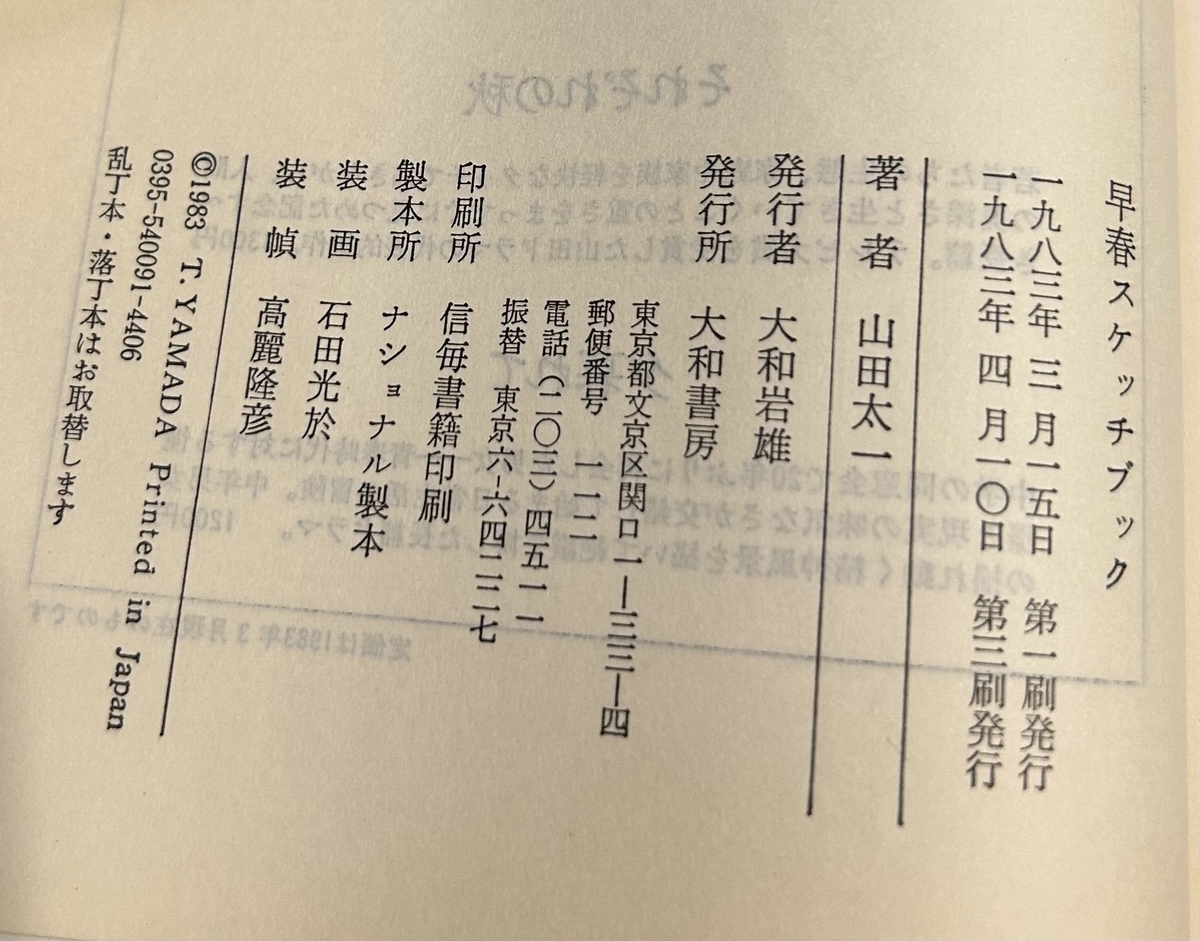 早春スケッチブック
一九八三年 三 月一五日 第一刷発行
一九八三年 四 月一〇日 第三刷発行
著 者 山田太一
発行者 大和岩雄
発行所 大和書房
東京都文京区関口一―三三―四
郵便番号 一一二
電話(二〇三)四五一一
振替 東京六-六四二二七
印刷所 信毎書籍印刷
製本所 ナショナル製本
装 画 石田光於
装 幀 高麗隆彦
©1983 T.YAMADA Printed in Japan
0395-540091-4406
乱丁本・落丁本はお取替します